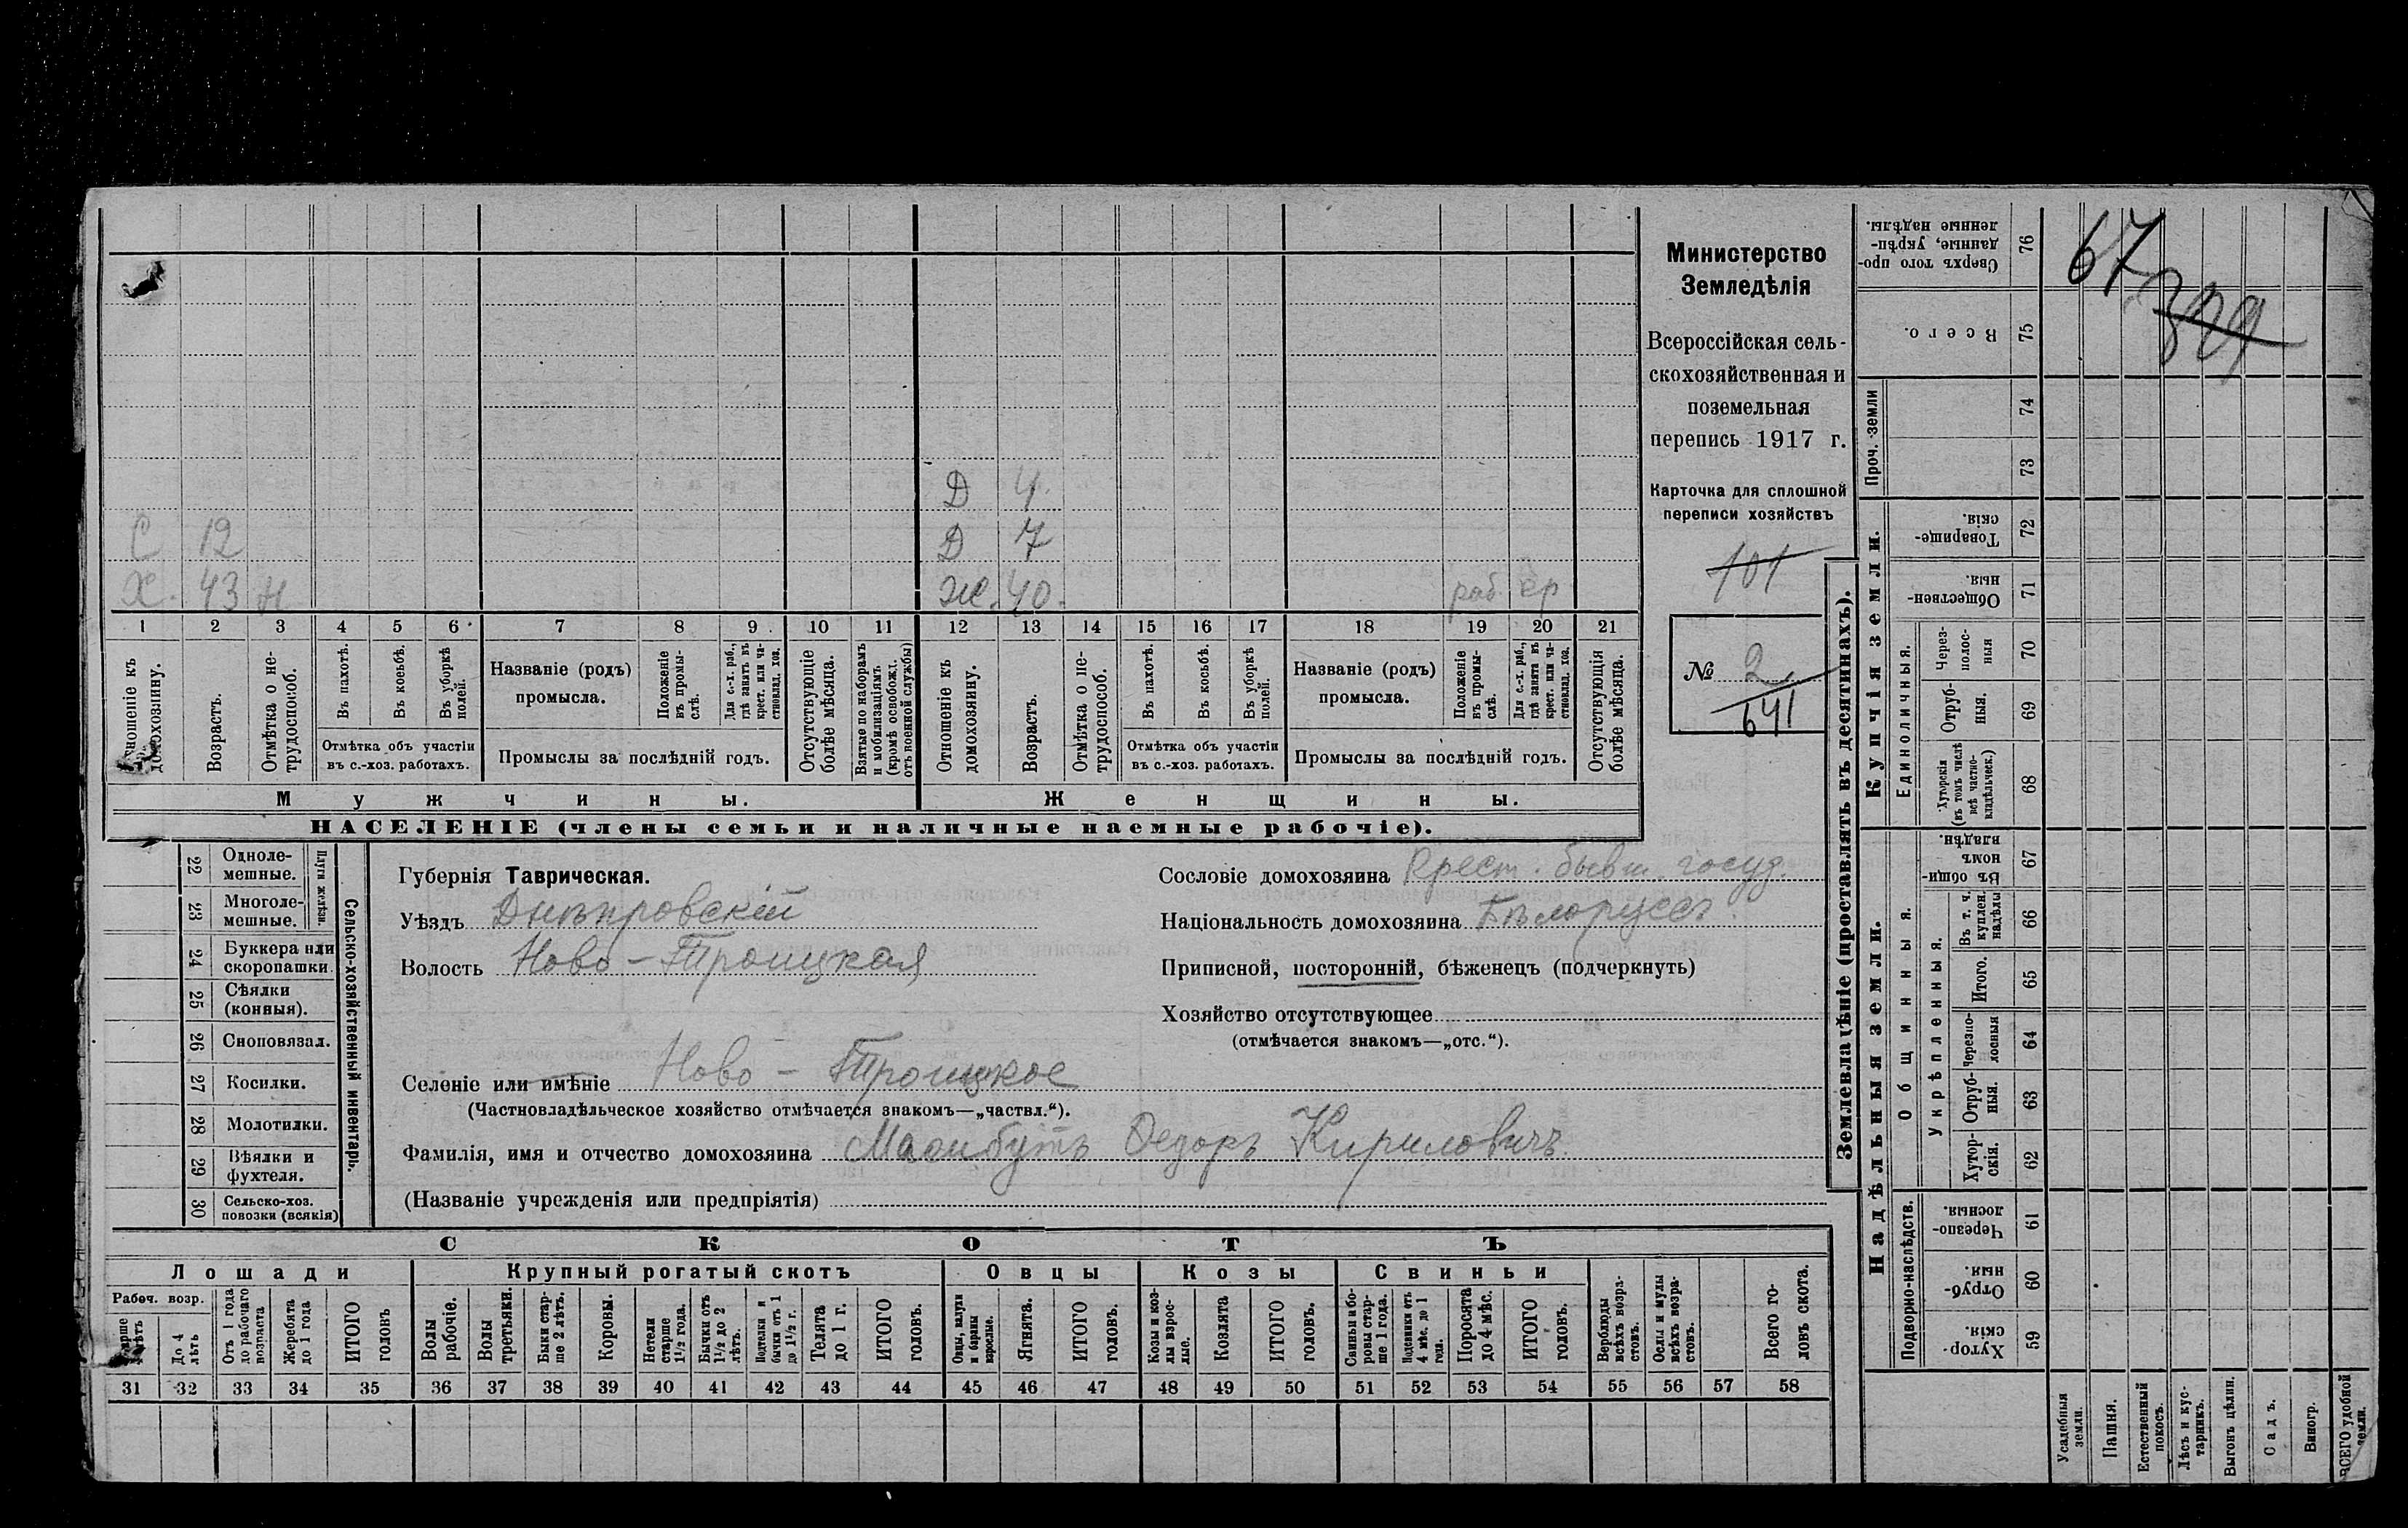 67
399
Министерство
Земледѣлія
Всероссійская сель-
скохозяйственная и
поземельная
перепись 1917 г.
Карточка для сплошной
переписи хозяйствъ
101
№ 2
641
Д 4.
С 12 Д 7
Х. 43 Н Ж. 40. раб.
1 2 3 4 5 6 7 8 9 10 11 12 13 14 15 16 17 18 19 20 21
Отношеніе къ домохозяину.
Возрастъ.
Отмѣтка о не-
трудоспособ.
Въ пахотѣ.
Въ косьбѣ.
Въ уборкѣ
полей.
Отмѣтка объ участіи
въ с.-хоз. работахъ.
Названіе (родъ)
промысла.
Положеніе
въ промы-
слѣ.
Для с.-х. раб.,
гдѣ занятъ въ
крест. или ча-
стновлад. хоз.
Промыслы за послѣдній годъ.
Отсутствующіе
болѣе мѣсяца.
Взятые по наборамъ
и мобилизаціямъ
(кромѣ освобожд.
отъ военной службы)
Отношеніе къ
домохозяину.
Возрастъ.
Отмѣтка о не-
трудоспособ.
Въ пахотѣ.
Въ косьбѣ.
Въ уборкѣ
полей.
Отмѣтка объ участіи
въ с.-хоз. работахъ.
Названіе (родъ)
промысла.
Положеніе
въ промы-
слѣ.
Для с.-х. раб.,
гдѣ занята въ
крест. или ча-
стновлад. хоз.
Промыслы за послѣдній годъ.
Отсутствующія
болѣе мѣсяца.
Мужчины.
Женщины.
НАСЕЛЕНІЕ (члены семьи и наличные наемные рабочіе).
22 Одноле-
мешные.
23 Многоле-
мешные.
Плуги желѣзн.
24 Буккера или
скоропашки.
25 Сѣялки
(конныя).
26 Сноповязал.
27 Косилки.
28 Молотилки.
29 Вѣялки и
фухтеля.
30 Сельско-хоз.
повозки (всякія)
Сельско-хозяйственный инвентарь.
Губернія Таврическая.
Уѣздъ Днѣпровскій
Волость Ново-Троицкая
Селеніе или имѣніе Ново-Троицкое
(Частновладѣльческое хозяйство отмѣчается знакомъ—„частвл.“).
Фамилія, имя и отчество домохозяина Федоръ Кириловичъ.
(Названіе учрежденія или предпріятія)
Сословіе домохозяина Крест. бывш. госуд.
Національность домохозяина Бѣлоруссъ.
Приписной, посторонній, бѣженецъ (подчеркнуть)
Хозяйство отсутствующее
(отмѣчается знакомъ—„отс.“).
СКОТЪ
Лошади
Крупный рогатый скотъ
Овцы
Козы
Свиньи
Рабоч. возр.
До 4
лѣтъ
Отъ 1 года
до рабочаго
возраста
Жеребята
до 1 года
ИТОГО
головъ
Волы
рабочіе.
Волы
третьяки.
Быки стар-
ше 2 лѣтъ.
Коровы.
Нетели
старше
1½ года.
Бычки отъ
1½ до 2
лѣтъ.
Подтелки и
бычки отъ 1
до 1½ г.
Телята
до 1 г.
ИТОГО
головъ.
Овцы, валухи
и бараны
взрослые.
Ягнята.
ИТОГО
головъ.
Козы и коз-
лы взрос-
лые.
Козлята
ИТОГО
головъ.
Свиньи и бо-
ровы стар-
ше 1 года.
Подсвинки отъ
4 мѣс. до 1
года.
Поросята
до 4 мѣс.
ИТОГО
головъ.
Верблюды
всѣхъ возра-
стовъ.
Ослы и мулы
всѣхъ возра-
стовъ.
Всего го-
ловъ скота.
31 32 33 34 35 36 37 38 39 40 41 42 43 44 45 46 47 48 49 50 51 52 53 54 55 56 57 58
Землевладѣніе (проставлять въ десятинахъ).
Сверхъ того про-
данные, укрѣп-
ленные надѣлы.
76
Всего.
75
Проч. земли
74
73
Купчія земли.
Товарище-
скія.
72
Обществен-
ныя.
71
Единоличныя.
Через-
полос-
ныя
70
Отруб-
ныя.
69
Хуторскія
(въ томъ числѣ
всѣ частно-
владѣльческ.)
68
Надѣльныя земли.
Общинныя.
Въ общин-
номъ
владѣн.
67
Укрѣпленныя.
Въ т. ч.
куплен.
надѣлы
66
Итого.
65
Черезпо-
лосныя
64
Отруб-
ныя.
63
Хутор-
скія.
62
Подворно-наслѣдств.
Черезпо-
лосныя.
61
Отруб-
ныя.
60
Хутор-
скія.
59
Усадебныя
земли.
Пашня.
Естественный
покосъ.
Лѣсъ и кус-
тарникъ.
Выгонъ цѣлин.
Садъ.
Виногр.
ВСЕГО удобной
земли.